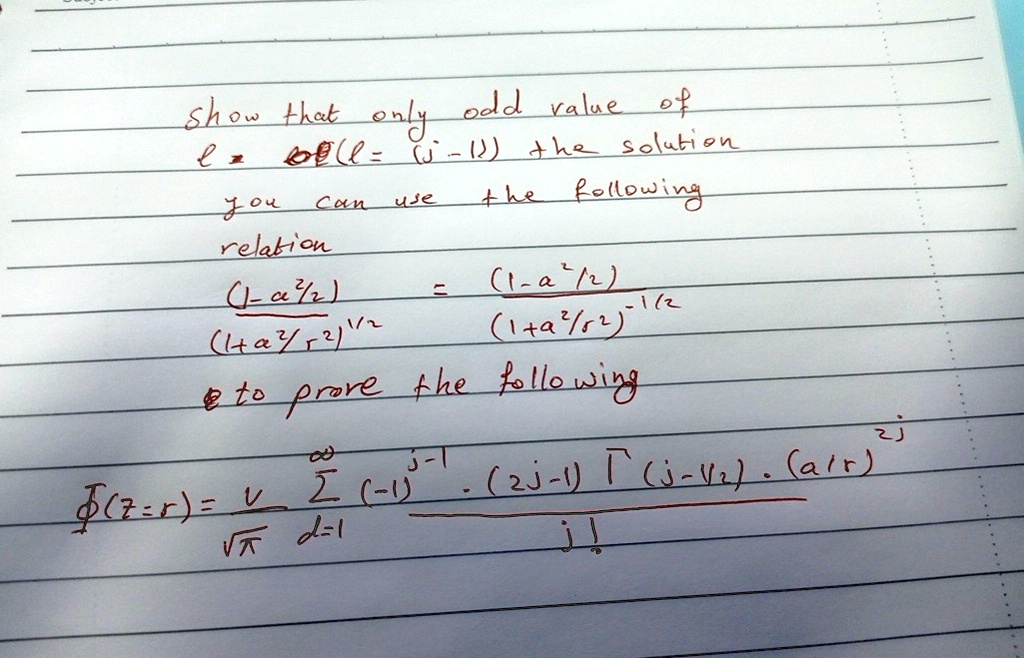 show that only odd value of
l = (l = (j-1)) the solution
you can use the following
relation
(1-a²/2) / (1+a²/r²)^1/2 = (1-a²/2) / (1+a²/r²)^-1/2
to prove the following
Φ(z=r) = V/√π Σ^∞_{d=1} (-1)^{j-1} . (2j-1) Γ(j-1/2) . (a/r)^{2j} / j!